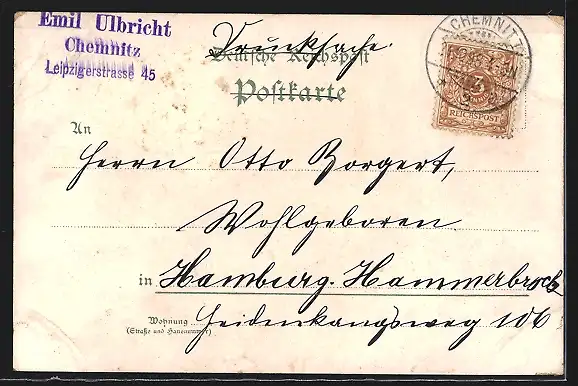 Emil Ulbricht
Chemnitz
Leipzigerstrasse 45
Drucksache.
Deutsche Reichspost
Postkarte
CHEMNITZ
3
REICHSPOST
An
Herrn Otto Borgert,
Wohlgeboren.
in Hamburg. Hammerbrock
Wohnung
(Straße und Hausnummer)
Heidenkampsweg 106